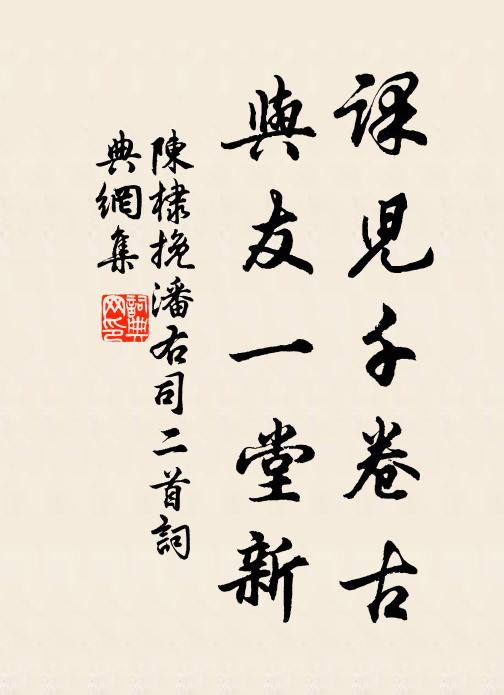 課兒千卷古
與友一堂新
陳棣挽潘右司二首詞
典網集
詞典網印